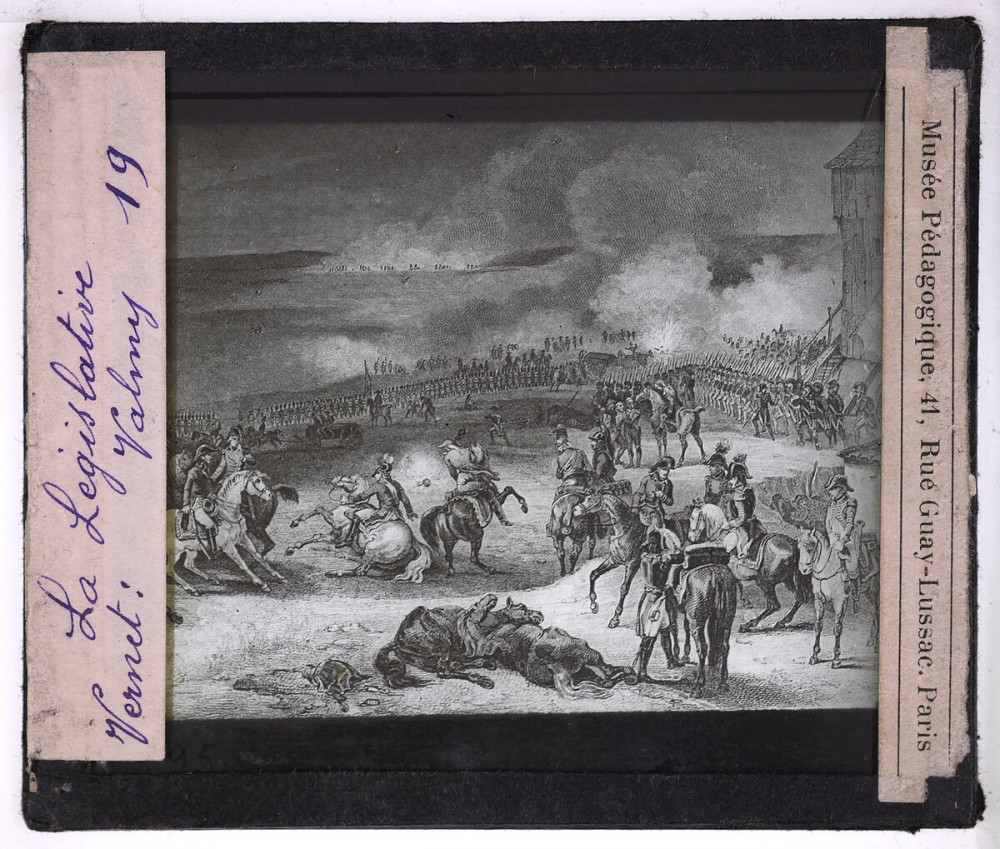 La Législative 19
Vernet: Valmy
Musée Pédagogique, 41, Rue Guay-Lussac. Paris
95